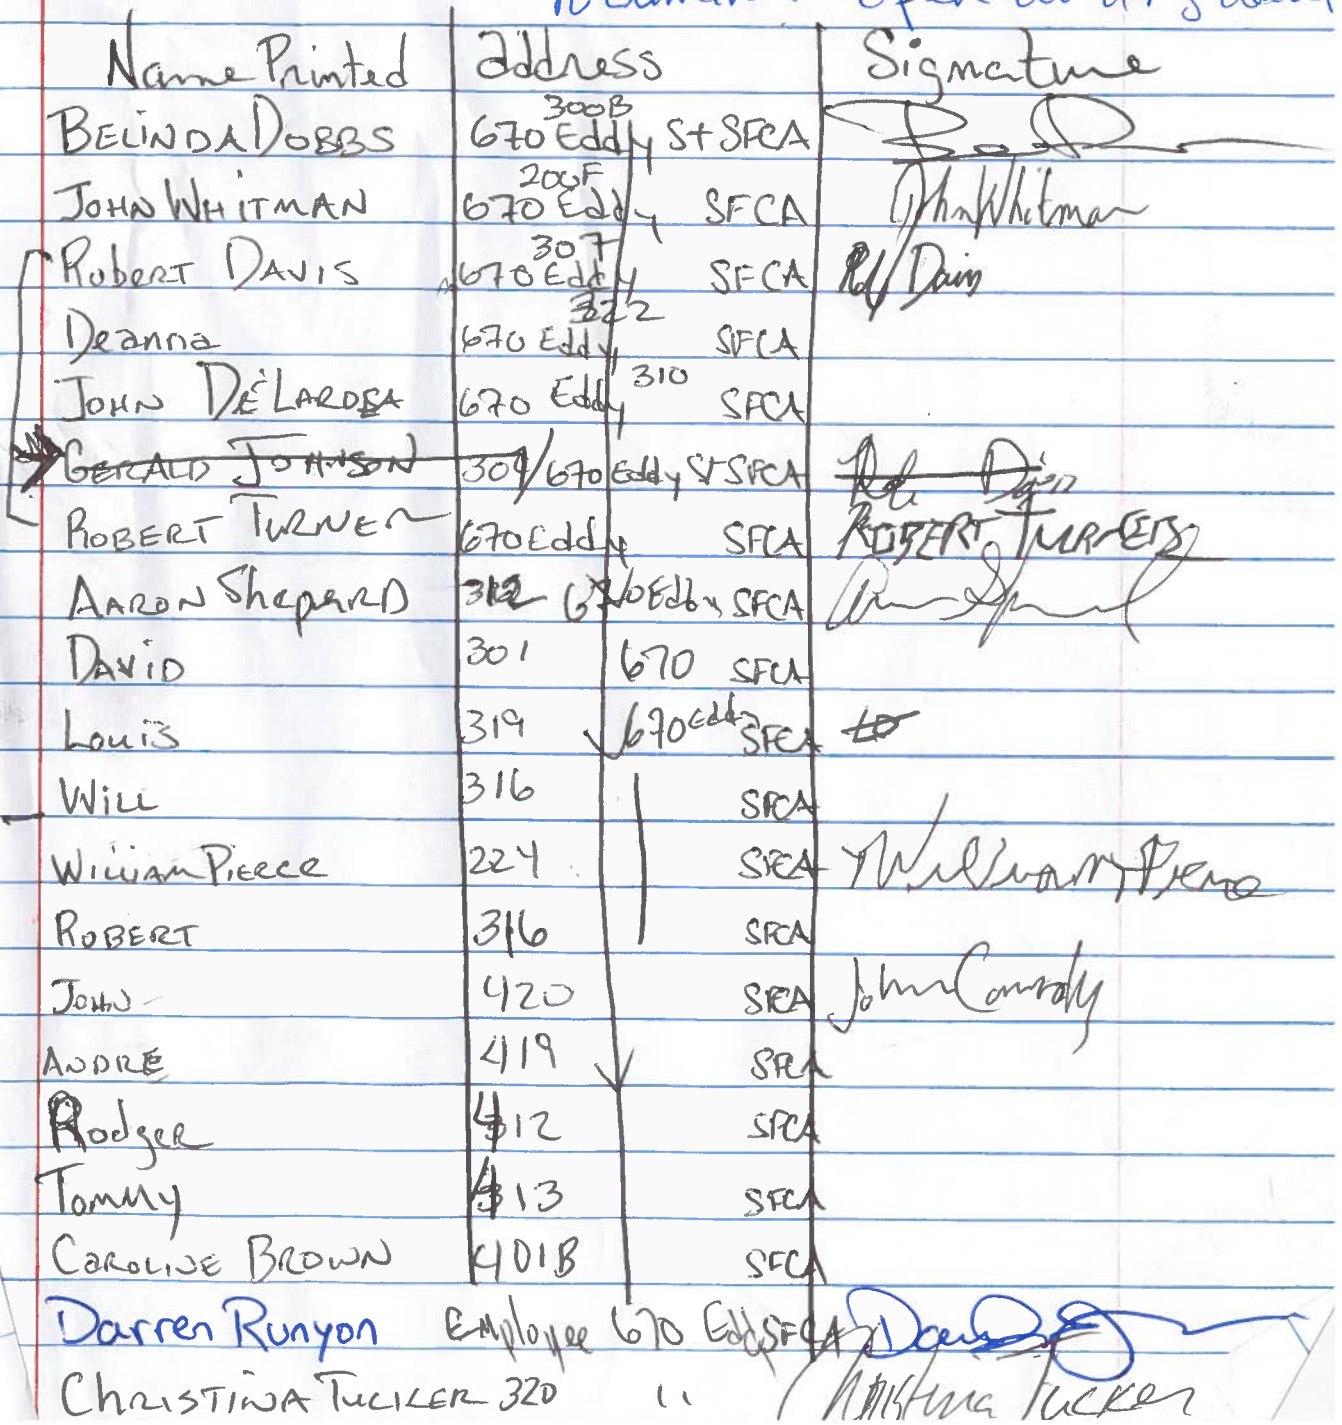 Name Printed address Signature
BELINDA DOBBS 300B 670 Eddy St SFCA
JOHN WHITMAN 200F 670 Eddy SFCA John Whitman
Robert DAVIS 307 670 Eddy SFCA
Deanna 322 670 Eddy SFCA
JOHN DELAROSA 670 Eddy 310 SFCA
GERALD JOHNSON 309/670 Eddy St SFCA
ROBERT TURNER 670 Eddy SFCA ROBERT TURNER
AARON ShepARD 312 670 Eddy SFCA
DAVID 301 670 SFCA
Louis 319 670 Eddy SFCA
WILL 316 SFCA
WILLIAM PIERCE 224 SFCA William Pierce
ROBERT 316 SFCA
JOHN 420 SFCA John
ANDRE 419 SFCA
Rodger 412 SFCA
Tommy 413 SFCA
CAROLINE BROWN 401B SFCA
Darren Runyon Employee 670 Eddy SFCA
CHRISTINA TUCKER 320 " Christina Tucker